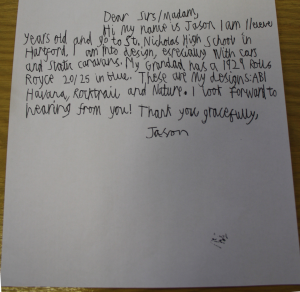 Dear Sirs/Madam,
Hi my name is Jason I am 11eleven
years old and go to St. Nicholas High School in
Hartford. I am into design, especially with cars
and static caravans. My Grandad has a 1929 Rolls
Royce 20/25 in blue. These are my designs: ABI
Havana, Rocktrail and Nature. I look forward to
hearing from you! Thank you, gracefully,
Jason